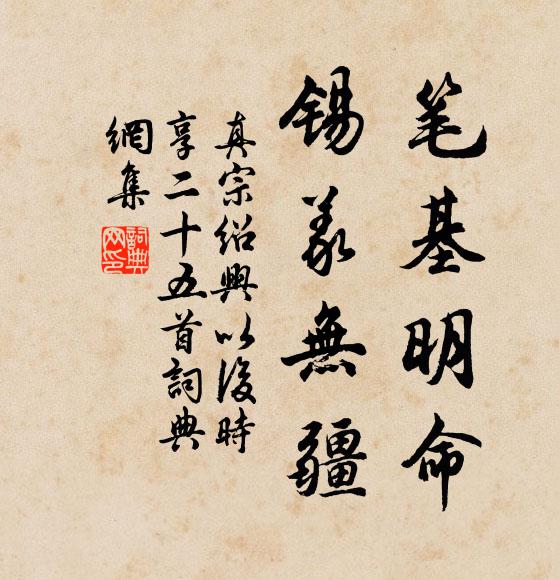 笔基明命
錫羨無疆
真宗紹興以後時
享二十五首詞典
網集
詞典
网印